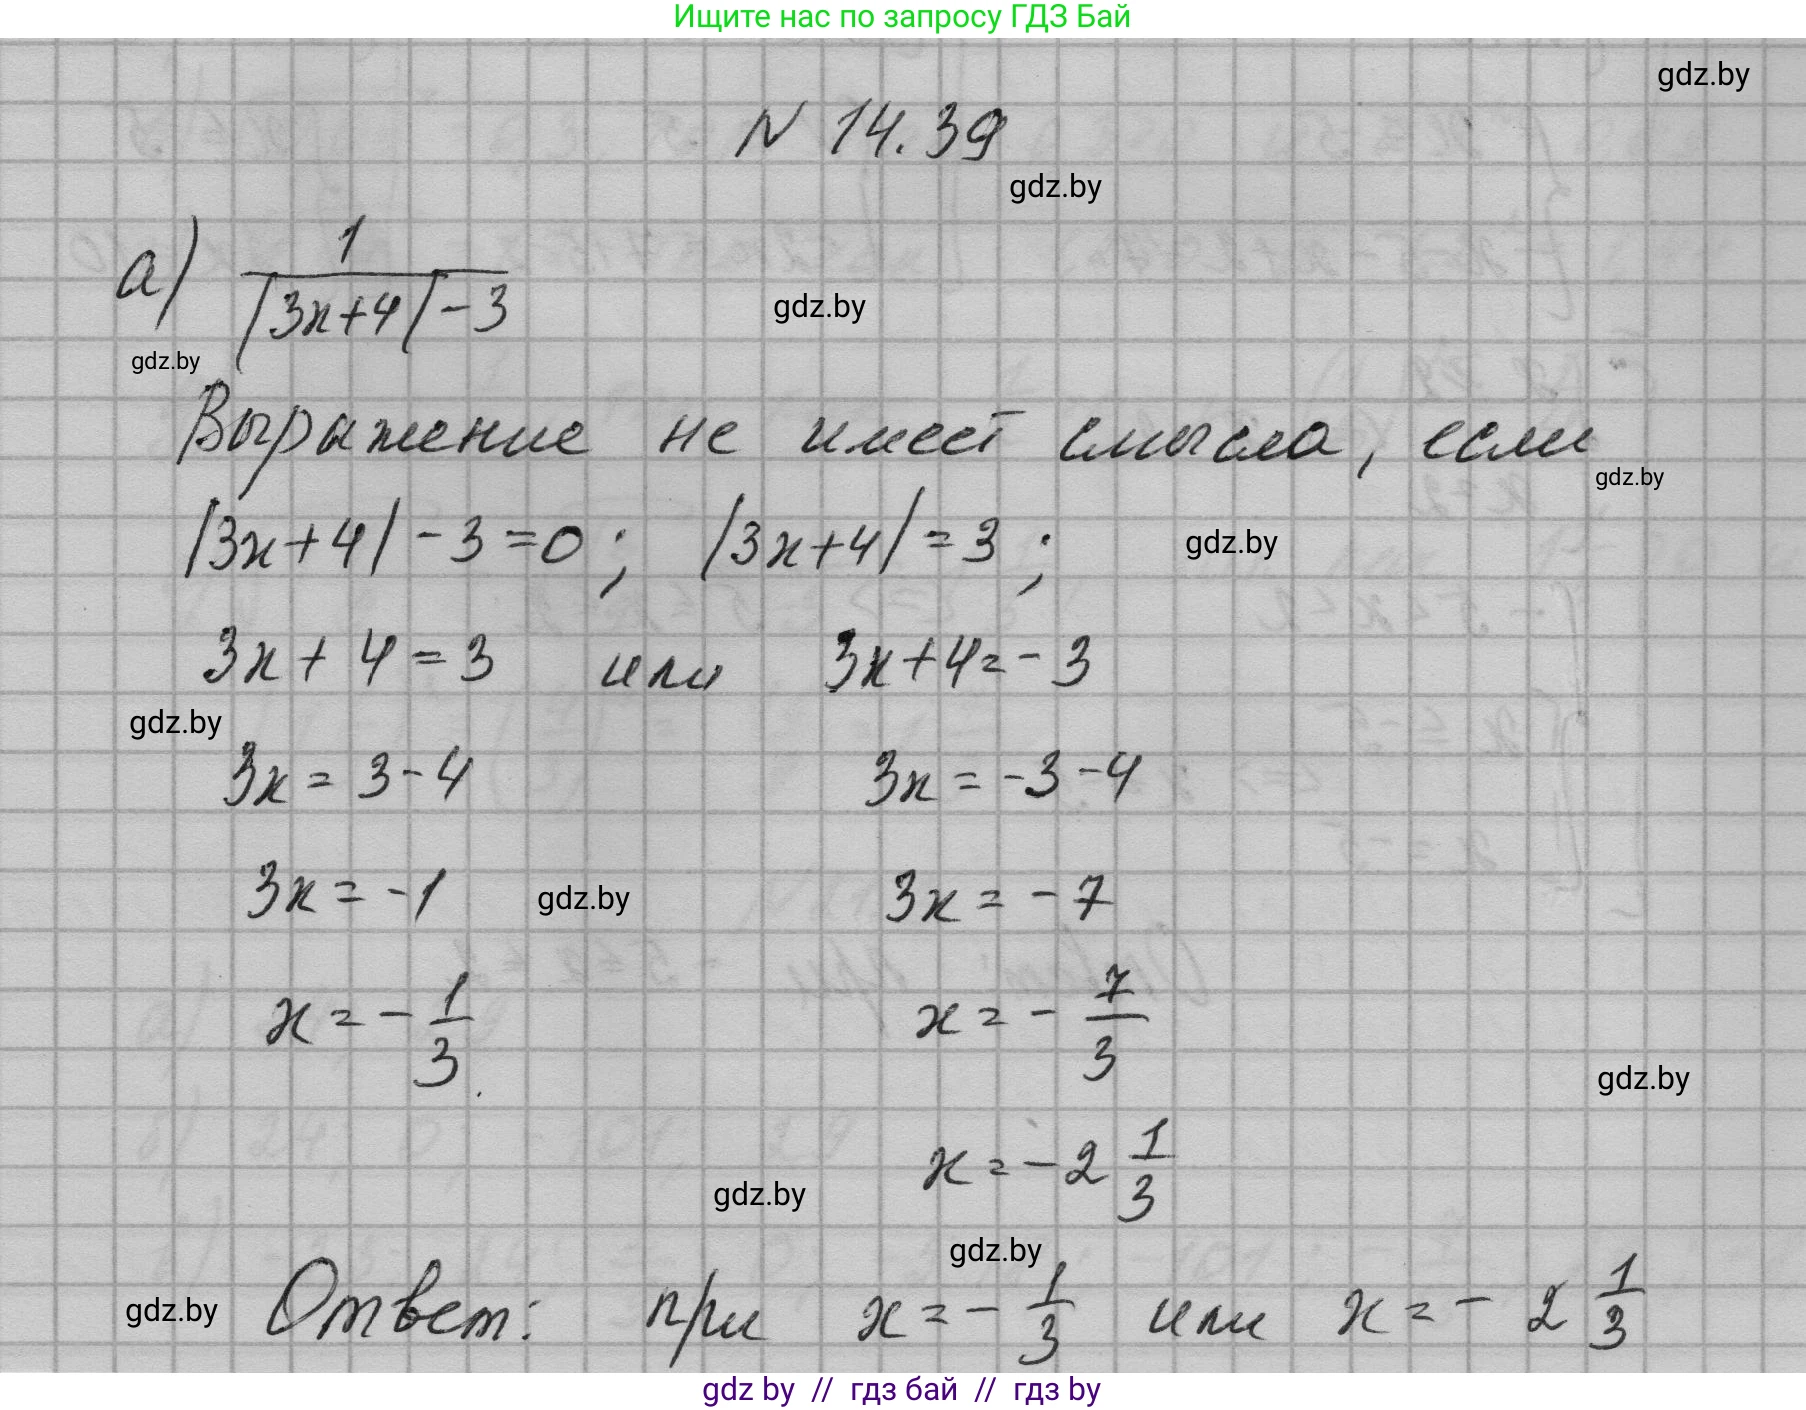 Ищите нас по запросу ГДЗ Бай
gdz.by
N 14.39
gdz.by
а) 1/(|3x+4|-3)
gdz.by
gdz.by
Выражение не имеет смысла, если
gdz.by
|3x+4|-3=0; |3x+4|=3;
gdz.by
3x+4=3 или 3x+4=-3
gdz.by
3x=3-4 3x=-3-4
3x=-1 gdz.by 3x=-7
x=-1/3 x=-7/3
gdz.by
x=-2 1/3
gdz.by
gdz.by
gdz.by Ответ: при x=-1/3 или x=-2 1/3
gdz by // гдз бай // гдз by